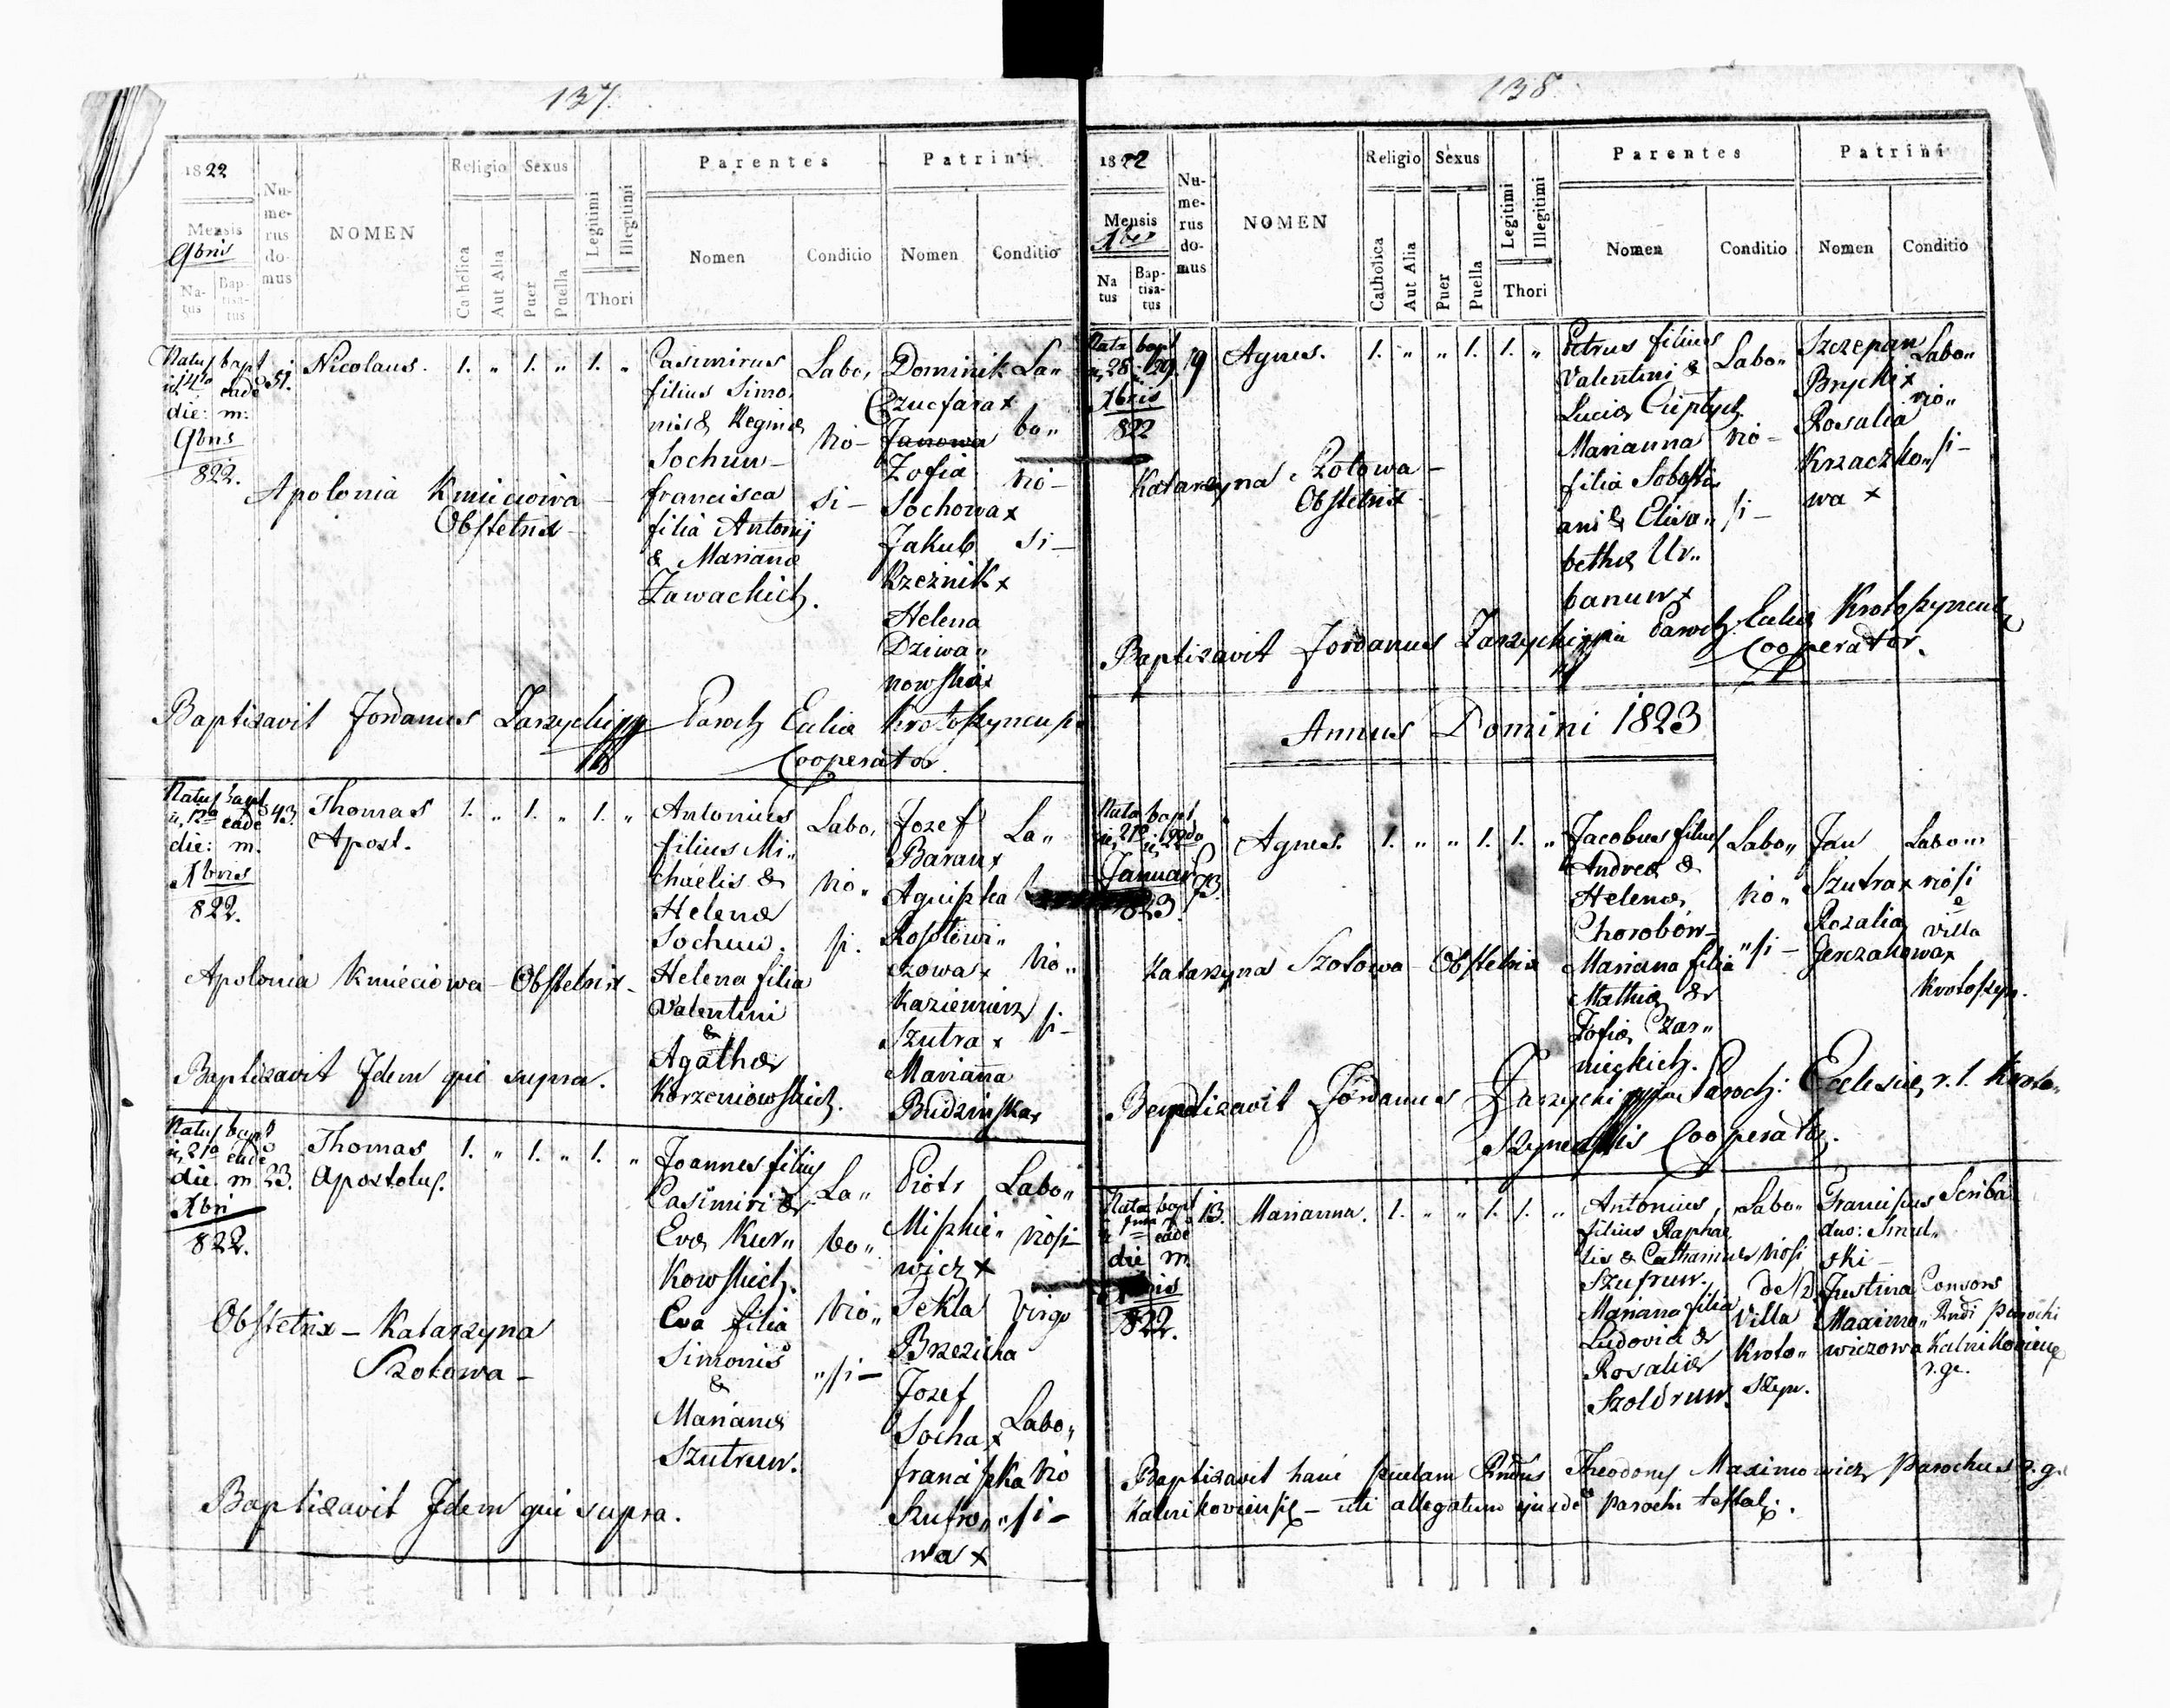 137.
1822
Mensis
9bris
Natus
Baptisatus
Numerus domus
NOMEN
Religio
Catholica
Aut Alia
Sexus
Puer
Puella
Legitimi
Illegitimi
Thori
Parentes
Nomen
Conditio
Patrini
Nomen
Conditio
Natus bapt
die: m:
9bris
822.
51.
Nicolaus.
1. „ 1. „ 1. „
Casimirus
filius Simo„
nis & Reginæ
Sochuw –
francisca
filia Antonij
& Marianæ
Zawackich.
Labo„
rio –
si –
Dominik
Czucfara x
Janowa
Zofia
Sochowa x
Jakub
Rzeźnik x
Helena
Dziwa„
nowska x
La„
bo„
rio –
si –
Apolonia Kmieciowa –
Obstetrix –
Baptizavit Jordanus Zarzycki Paroch Ecliæ Krotoszyncu
Cooperator.
Natus bapt
die: m.
Xbris
822.
43.
Thomas
Apost.
1. „ 1. „ 1. „
Antonius
filius Mi„
chaelis &
Helenæ
Sochuw.
Helena filia
Valentini
&
Agathæ
Korzeniowskich.
Labo„
rio„
si.
Jozef
Baran x
Agniszka
Rosolowi„
czowa x
Kaziemierz
Szutra x
Marianna
Budzinska x
La„
rio„
si –
Apolonia Kmieciowa – Obstetrix –
Baptizavit Idem qui supra.
Natus bapt
die m
Xbri
822.
23.
Thomas
Apostolus.
1. „ 1. „ 1. „
Joannes filius
Casimiri &
Evæ Kur„
kowskich.
Eva filia
Simonis
&
Marianæ
Szutruw.
La„
bo„
rio„
„si –
Piotr
Miszkie„
wicz x
Tekla
Brzezicha
Jozef
Socha x
franciszka
Kufro„
wa x
Labo„
riosi –
Virgo
Labo„
rio
„si –
Obstetrix – Katarzyna
Szotowa –
Baptizavit Idem qui supra.
138.
1822
Mensis
Xbris
Natus
Baptisatus
Numerus domus
NOMEN
Religio
Catholica
Aut Alia
Sexus
Puer
Puella
Legitimi
Illegitimi
Thori
Parentes
Nomen
Conditio
Patrini
Nomen
Conditio
Nata bapt
28. 29.
Xbris
822
19
Agnes.
1. „ „ 1. 1. „
Petrus filius
Valentini &
Luciæ
Marianna
filia Sobosti„
ani & Elisa„
bethæ Ur„
banuw x
Labo„
rio –
si –
Szczepan
Brycki x
Rosalia
Krzaczko„
wa x
Labo„
rio„
si –
Katarzyna Szotowa –
Obstetrix –
Baptizavit Jordanus Zarzycki Paroch: Ecliæ Krotoszyncu
Cooperator.
Annus Domini 1823
Nata bapt
Januar
823.
73.
Agnes.
1. „ „ 1. 1. „
Jacobus filius
Andreæ &
Helenæ
Chorobów –
Mariana filia
Mathiæ &
Zofiæ Czar„
nieckich.
Labo„
rio„
„si –
Jan
Szutra x
Rozalia
Gerczakowa x
Labo„
riosi
e
villa
Krotoszyn.
Katarzyna Szotowa – Obstetrix
Baptizavit Jordanus Zarzycki Paroch: Ecclesiæ r. l. Kroto„
szynensis Cooperator.
Nata bapt
die m.
822.
13.
Marianna.
1. „ „ 1. 1. „
Antonius,
filius Rapha„
lis & Catharinæ
Szufruw.
Mariana filia
Ludovici &
Rosaliæ
Szoldruw.
Labo„
riosi
de
Villa
Kroto„
szyn.
Franciscus
duo: Smul„
ski –
Justina
Maximo„
wiczowa
Scriba
Consors
Rndi Parochi
Kalnikovien
r. gr.
Baptizavit hanc puelam Rndus Theodorus Maximowicz Parochus r. g.
Kalnikoviensis – uti allegatum ejusdē parochi testat.